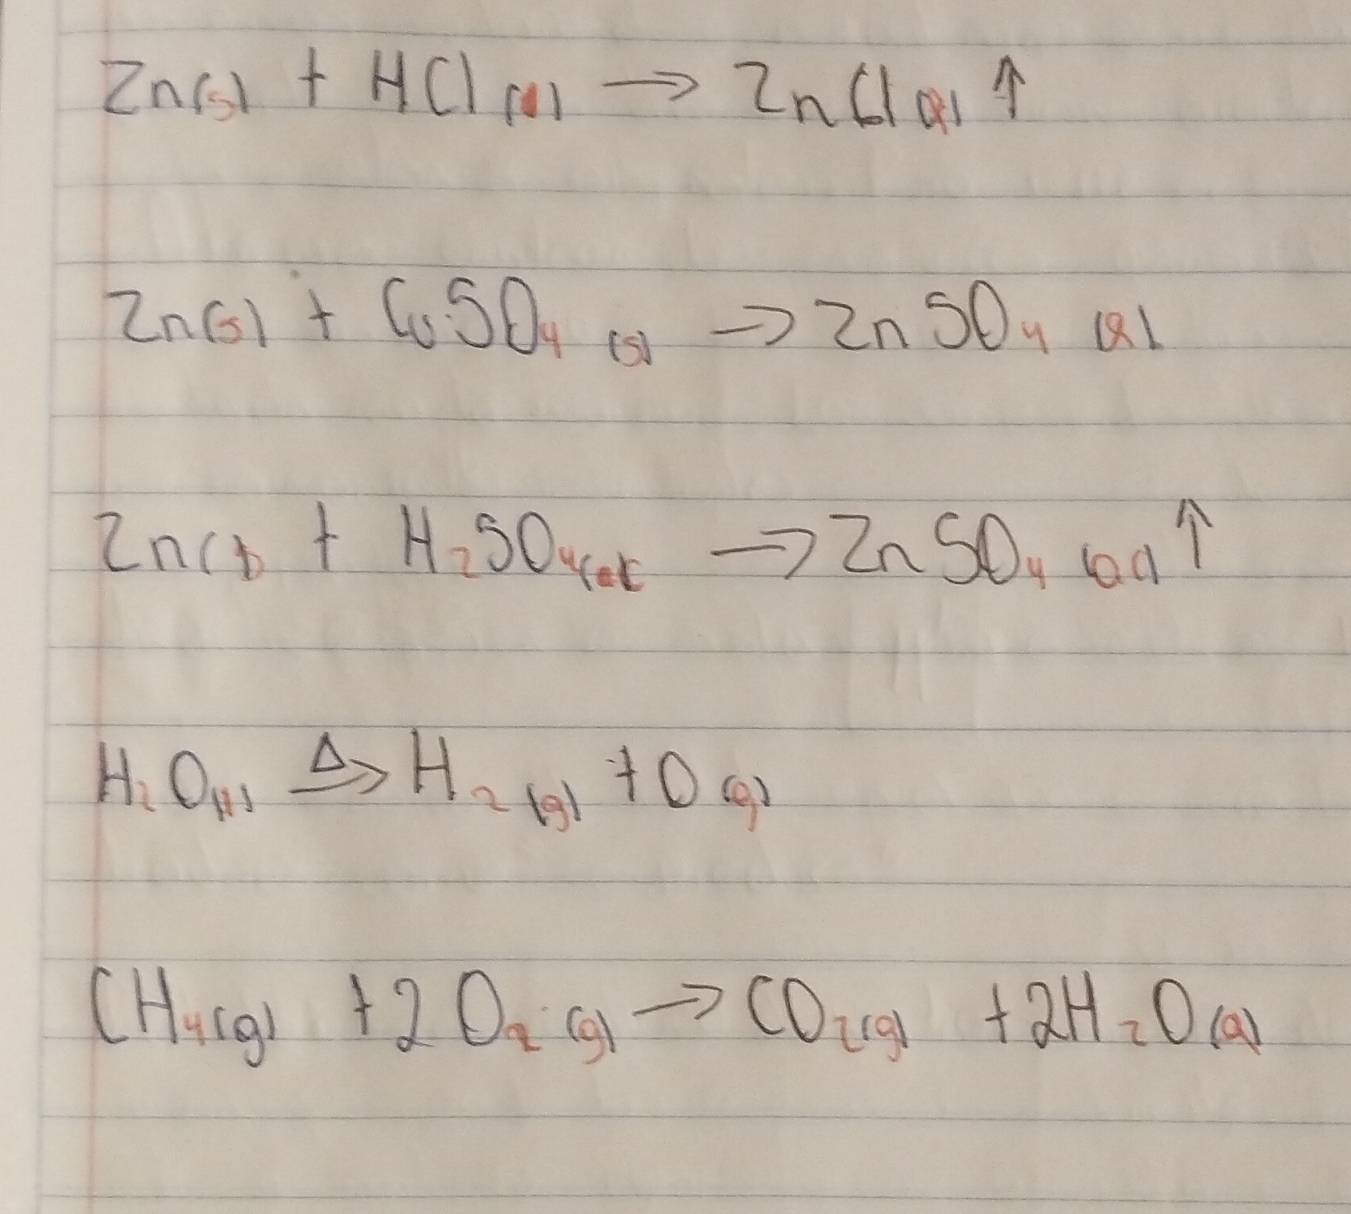 Zn(s) + HCl (l) → ZnCl (l) ↑
Zn(s) + CuSO₄ (s) → ZnSO₄ (l)
Zn + H₂SO₄ → ZnSO₄ ↑
H₂O(l) Δ→ H₂ (g) + O (g)
CH₄(g) + 2O₂ (g) → CO₂(g) + 2H₂O